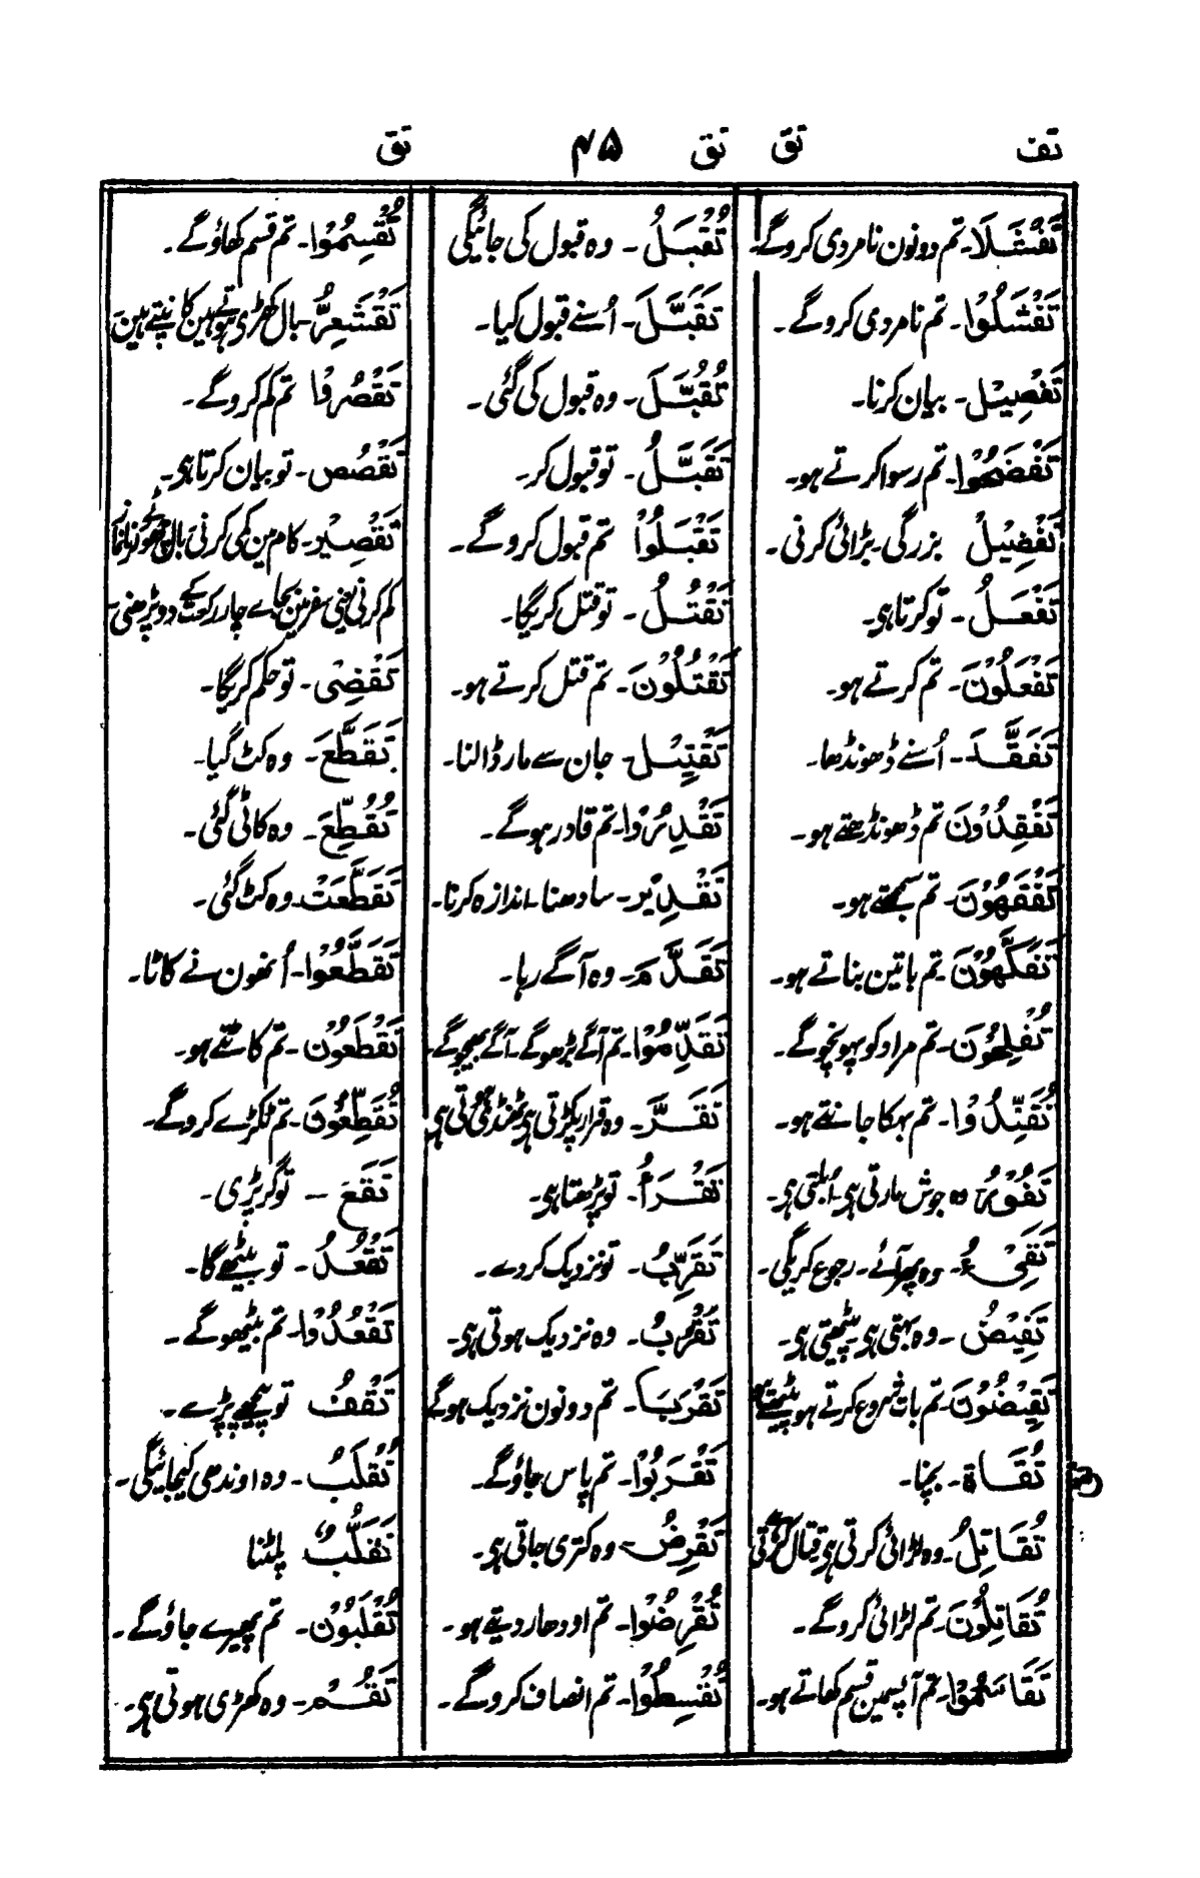 تف تق ۴۵ تق تق
تَفْشَلَا۔ تم دونون نامردی کروگے۔
تَفْشَلُوْا۔ تم نامردی کروگے۔
تَفْصِیْل۔ بیان کرنا۔
تَفْضَحُوْا۔ تم رسوا کرتے ہو۔
تَفْضِیْلُ بزرگی۔ بڑائی کرنی۔
تَفْعَلُ۔ تو کرتا ہی۔
تَفْعَلُوْنَ۔ تم کرتے ہو۔
تَفَقَّدَ۔ اُسنے ڈھونڈھا۔
تَفْقِدُوْنَ تم ڈھونڈھتے ہو۔
تَفْقَهُوْنَ۔ تم سمجھتے ہو۔
تَفَكَّهُوْنَ۔ تم باتین بناتے ہو۔
تُفْلِحُوْنَ۔ تم مراد کو پہونچوگے۔
تُفَنِّدُوْا۔ تم بہکا جانتے ہو۔
تَفُوْرُ۔ وہ جوش مارتی ہی۔ اُبلتی ہی۔
تَفِیْءُ۔ وہ پھر آئے۔ رجوع کریگی۔
تَفِیْضُ۔ وہ بہتی ہی۔
تُفِیْضُوْنَ۔ تم بات شروع کرتے ہو
تُقَاة۔ بچنا۔
تُقَاتِلُ۔ وہ لڑائی کرتی ہی قتال کرتی
تُقَاتِلُوْنَ۔ تم لڑائی کروگے۔
تَقَاسَمُوْا۔ تم آپسمین قسم کھاتے ہو۔
تُقْبَلُ۔ وہ قبول کی جائیگی
تَقَبَّلَ۔ اُسنے قبول کیا۔
تُقُبِّلَ۔ وہ قبول کی گئی۔
تَقَبَّلْ۔ تو قبول کر۔
تَقْبَلُوْا تم قبول کروگے۔
تَقْتُلُ۔ تو قتل کریگا۔
تَقْتُلُوْنَ۔ تم قتل کرتے ہو۔
تَقْتِیْل۔ جان سے مار ڈالنا۔
تَقْدِرُوْا۔ تم قادر ہوگے۔
تَقْدِیْر۔ سادھنا۔ اندازہ کرنا۔
تَقَدَّمَ۔ وہ آگے رہا۔
تُقَدِّمُوْا۔ تم آگے بڑھوگے۔ آگے بھیجوگے۔
تَقَرَّ۔ وہ قرار پکڑتی ہی ٹھنڈی ہوتی ہی
تَقْرَأُ۔ تو پڑھتا ہی۔
تُقَرِّبُ۔ تو نزدیک کردے۔
تَقْرُبُ۔ وہ نزدیک ہوتی ہی۔
تَقْرَبَا۔ تم دونون نزدیک ہوگے
تَقْرَبُوْا۔ تم پاس جاؤگے۔
تَقْرِضُ۔ وہ کتری جاتی ہی۔
تُقْرِضُوْا۔ تم اودھار دیتے ہو۔
تُقْسِطُوْا۔ تم انصاف کروگے۔
تُقْسِمُوْا۔ تم قسم کھاؤگے۔
تَقْشَعِرُّ۔ بال کھڑی ہوتے ہین کانپتے ہین
تَقْصُرُوْا تم کم کروگے۔
تَقْصُص۔ تو بیان کرتا ہی۔
تَقْصِیْر۔ کام مین کمی کرنی بال چھوٹے کرنا نماز
کم کرنی یعنی سفر مین بجاے چار رکعت کے دو پڑھنی۔
تَقْضِیْ۔ تو حکم کریگا۔
تَقَطَّعَ۔ وہ کٹ گیا۔
تُقُطِّعَ۔ وہ کاٹی گئی۔
تَقَطَّعَتْ۔ وہ کٹ گئی۔
تَقَطَّعُوْا۔ اُنھون نے کاٹا۔
تَقْطَعُوْن۔ تم کاٹتے ہو۔
تُقَطِّعُوْنَ۔ تم ٹکڑے کروگے۔
تَقَعَ۔ تو گر پڑی۔
تَقْعُدُ۔ تو بیٹھے گا۔
تَقْعُدُوْا۔ تم بیٹھوگے۔
تَقْفُ تو پیچھے پڑے۔
تُقْلَبُ۔ وہ اوندھی کیجائیگی۔
تَقَلُّبُ پلٹنا
تُقْلَبُوْن۔ تم پھیرے جاؤگے۔
تَقُمْ۔ وہ کھڑی ہوتی ہی۔